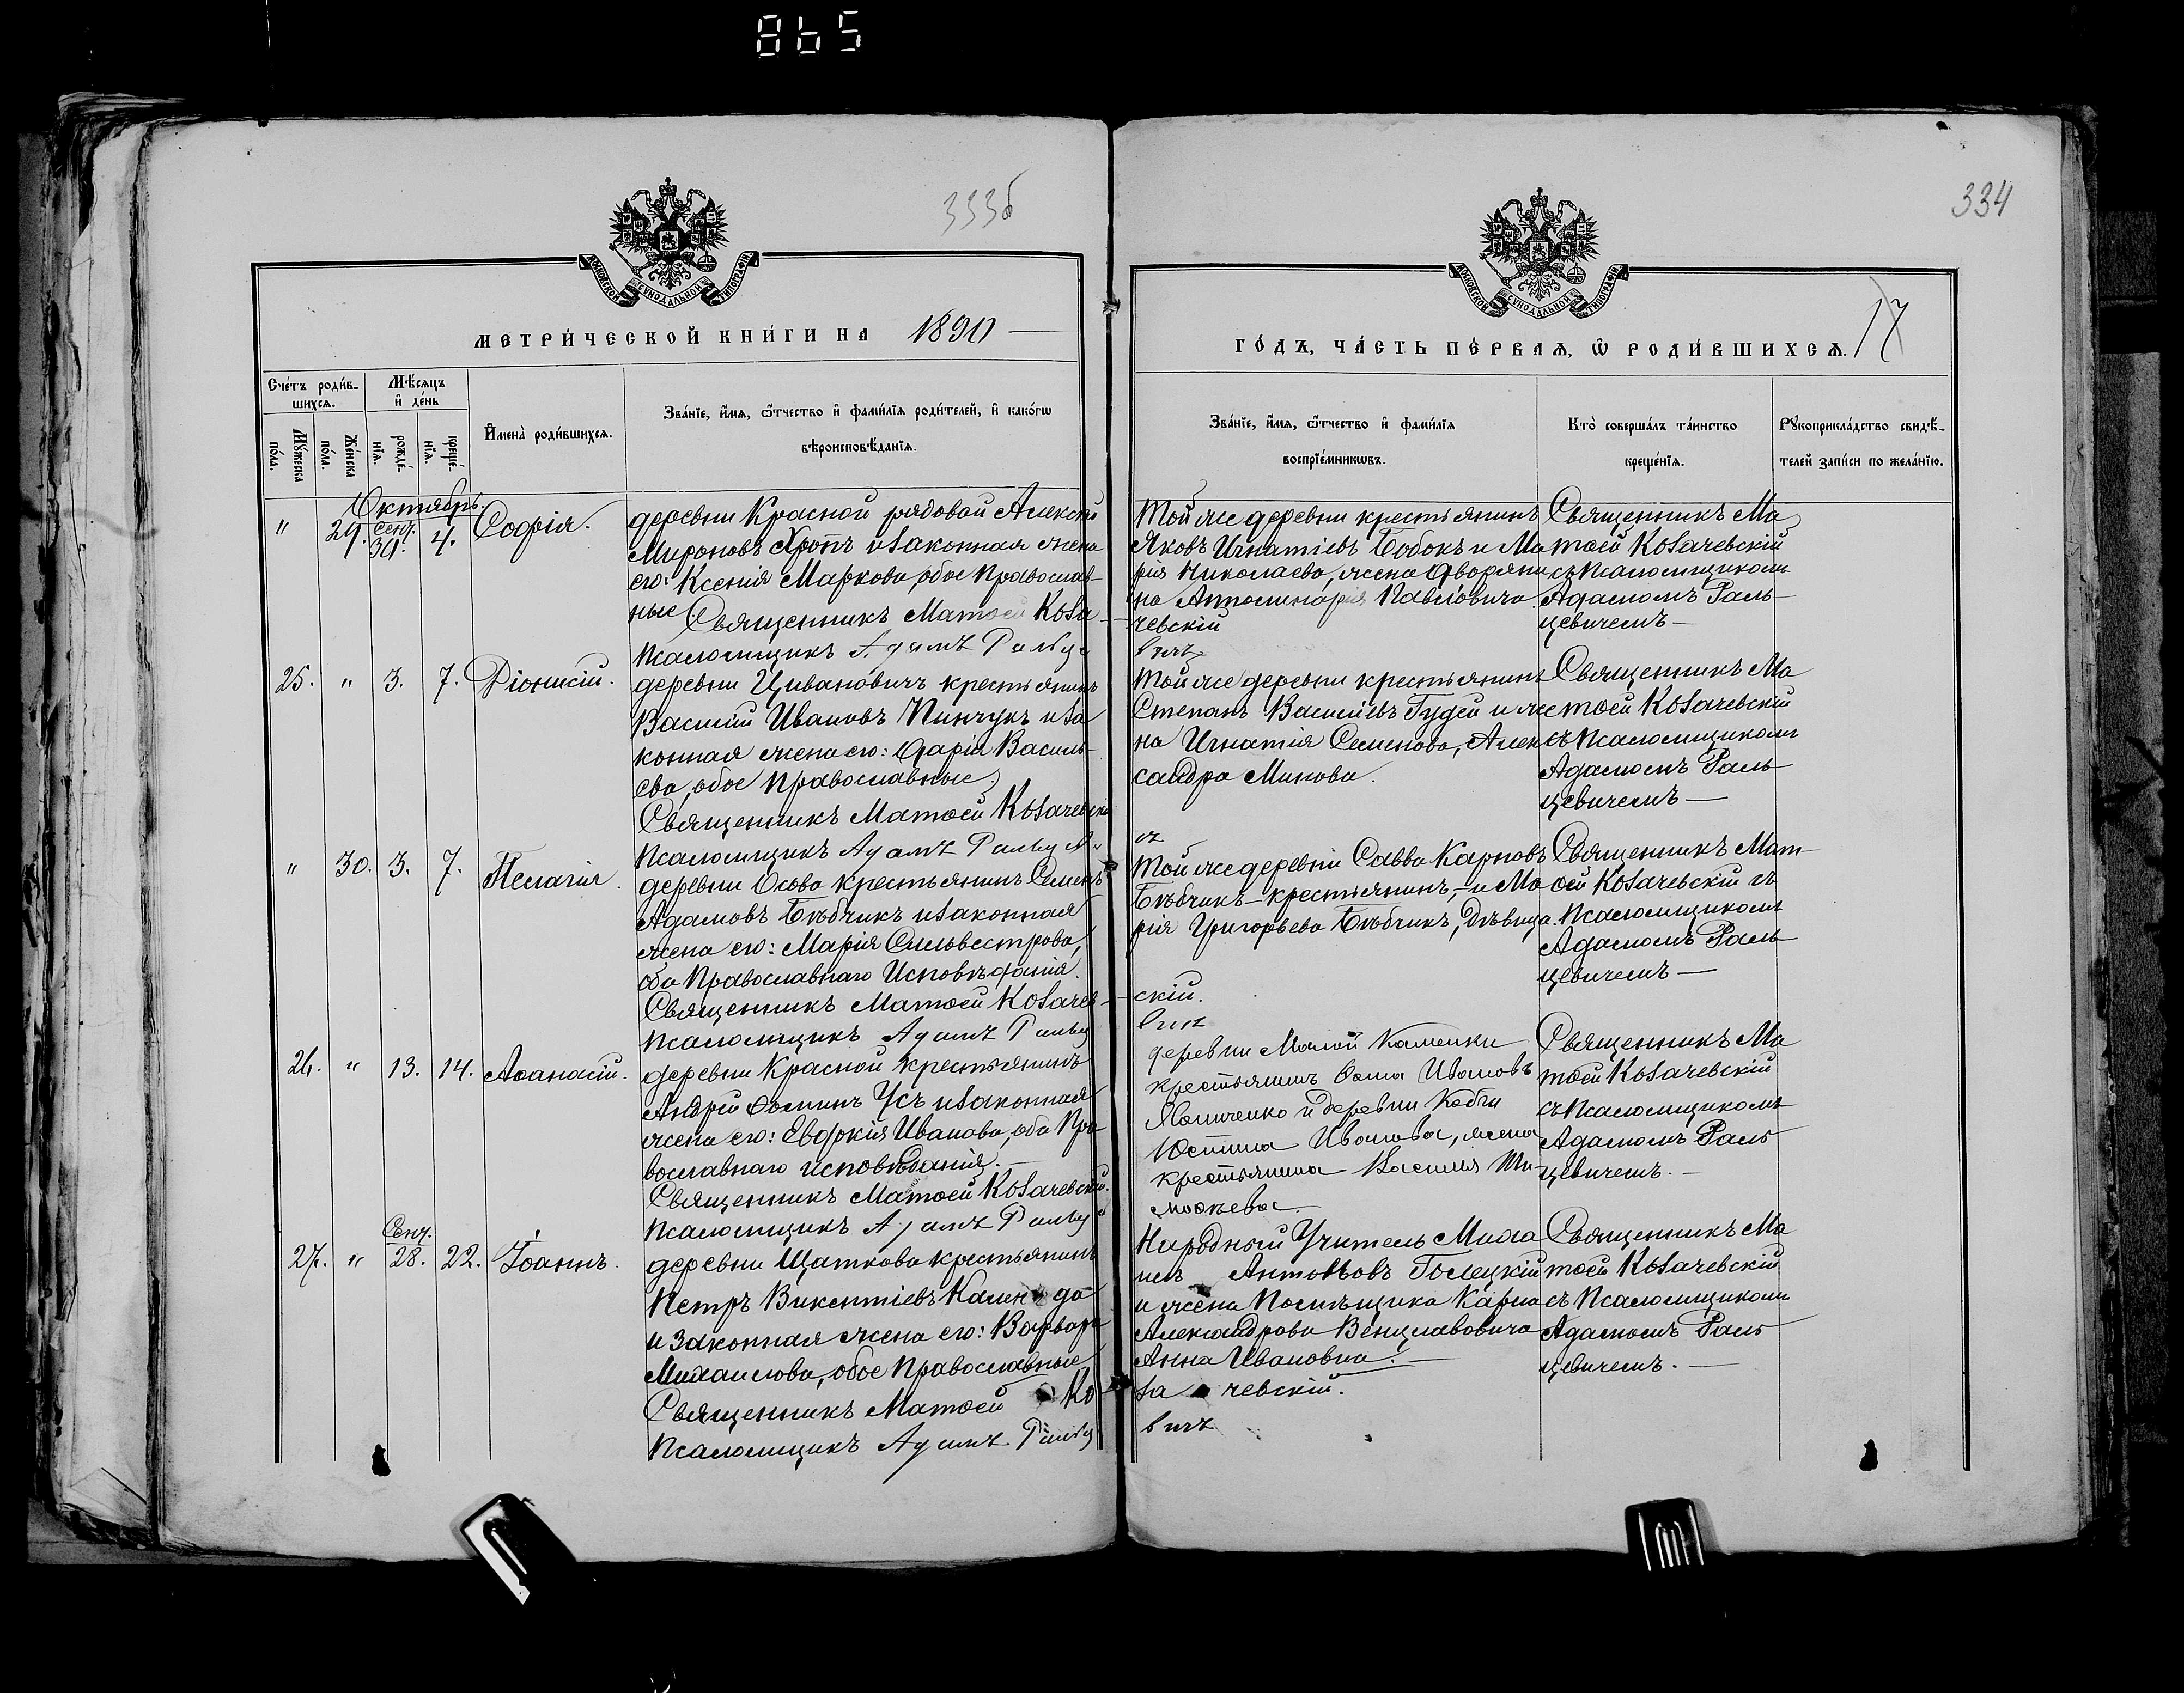 865
333б
334
МОСКОВСКОЙ СѴНОДАЛЬНОЙ ТИПОГРАФІИ
МОСКОВСКОЙ СѴНОДАЛЬНОЙ ТИПОГРАФІИ
МЕТРИ́ЧЕСКОЙ КНИ́ГИ НА 1890
ГО́ДЪ, ЧА́СТЬ ПЕ́РВАѦ, Ѽ РОДИ́ВШИХСѦ. 17
Сче́тъ роди́в-
шихсѧ.
Мꙋ́жеска
по́ла.
Же́нска
по́ла.
Мѣ́сѧцъ
и҆ де́нь
рожде́-
нїѧ.
креще́-
нїѧ.
И҆мена̀ роди́вшихсѧ.
Зва́нїе, и҆́мѧ, ѻ҆́тчество и҆ фами́лїѧ роди́телей, и҆ како́гѡ
вѣроисповѣ́данїѧ.
Зва́нїе, и҆́мѧ, ѻ҆́тчество и҆ фами́лїѧ
воспрїе́мникѡвъ.
Кто̀ соверша́лъ та́инство
креще́нїѧ.
Рꙋкоприкла́дство свидѣ́-
телей за́писи по жела́нїю.
Октябрь.
" 29. Сент. 30. 4. Софія.
деревни Красной рядовой Алексѣй
Мироновъ Хропъ и законная жена
его: Ксенія Маркова, обое Православ-
ные
Священникъ Матѳей Коза-
чевскій
Псаломщикъ Адамъ Ральце
вичъ
Той же деревни крестьянинъ
Яковъ Игнатіевъ Бобокъ и Ма
рія Николаева, жена дворяни
на Апполинарія Павловича.
Священникъ Ма
тѳей Козачевскій
съ Псаломщикомъ
Адамомъ Раль-
цевичемъ —
25. " 3. 7. Діонисій.
деревни Цивановичъ крестьянинъ
Василій Ивановъ Пинчукъ и за
конная жена его: Дарія Василь-
ева, обое Православные
Священникъ Матѳей Козачевскій
Псаломщикъ Адамъ
Той же деревни крестьянинъ
Степанъ Василіевъ Гудей и же
на Игнатія Семенова, Алек
сандра Минова.
Священникъ Ма
тѳей Козачевскій
съ Псаломщикомъ
Адамомъ Раль
цевичемъ —
" 30. 3. 7. Пелагія.
деревни Осова крестьянинъ Семенъ
Адамовъ Бѣбчикъ и законная
жена его: Марія Сильвестрова,
оба Православнаго Исповѣданія.
Священникъ Матѳей Козачев-
скій.
Псаломщикъ Адамъ Ральце
вичъ
Той же деревни Савва Карповъ
Бѣбчикъ — крестьянинъ, — и Ма
рія Григорьева Бѣбчикъ, дѣвица.
Священникъ Мат-
ѳей Козачевскій съ
Псаломщикомъ
Адамомъ Раль
цевичемъ —
26. " 13. 14. Аѳанасій.
деревни Красной крестьянинъ
Андрей Ѳоминъ Усъ и законная
жена его: Евфокія Иванова, оба Пра
вославнаго исповѣданія. —
Священникъ Матѳей Козачевскій.
Псаломщикъ Адамъ
деревни Малой Каменки
крестьянинъ Ѳома Ивановъ
и деревни
Юстина Иванова, жена
крестьянина Василія Ти-
моѳеева.
Священникъ Ма
тѳей Козачевскій
съ Псаломщикомъ
Адамомъ Раль
цевичемъ. —
27. " Сент. 28. 22. Іоаннъ.
деревни Щаткова крестьянинъ
Петръ Викентіевъ Календо
и законная жена его: Варвара
Михаилова, обое Православные
Священникъ Матѳей Ко
за чевскій.
Псаломщикъ Адамъ Ральце
вичъ
Народный Учитель Миха
илъ Антоновъ Голецкій
и жена Помѣщика Карла
Александрова Венцлавовича
Анна Ивановна. —
Священникъ Ма
тѳей Козачевскій
съ Псаломщикомъ
Адамомъ Раль
цевичемъ. —